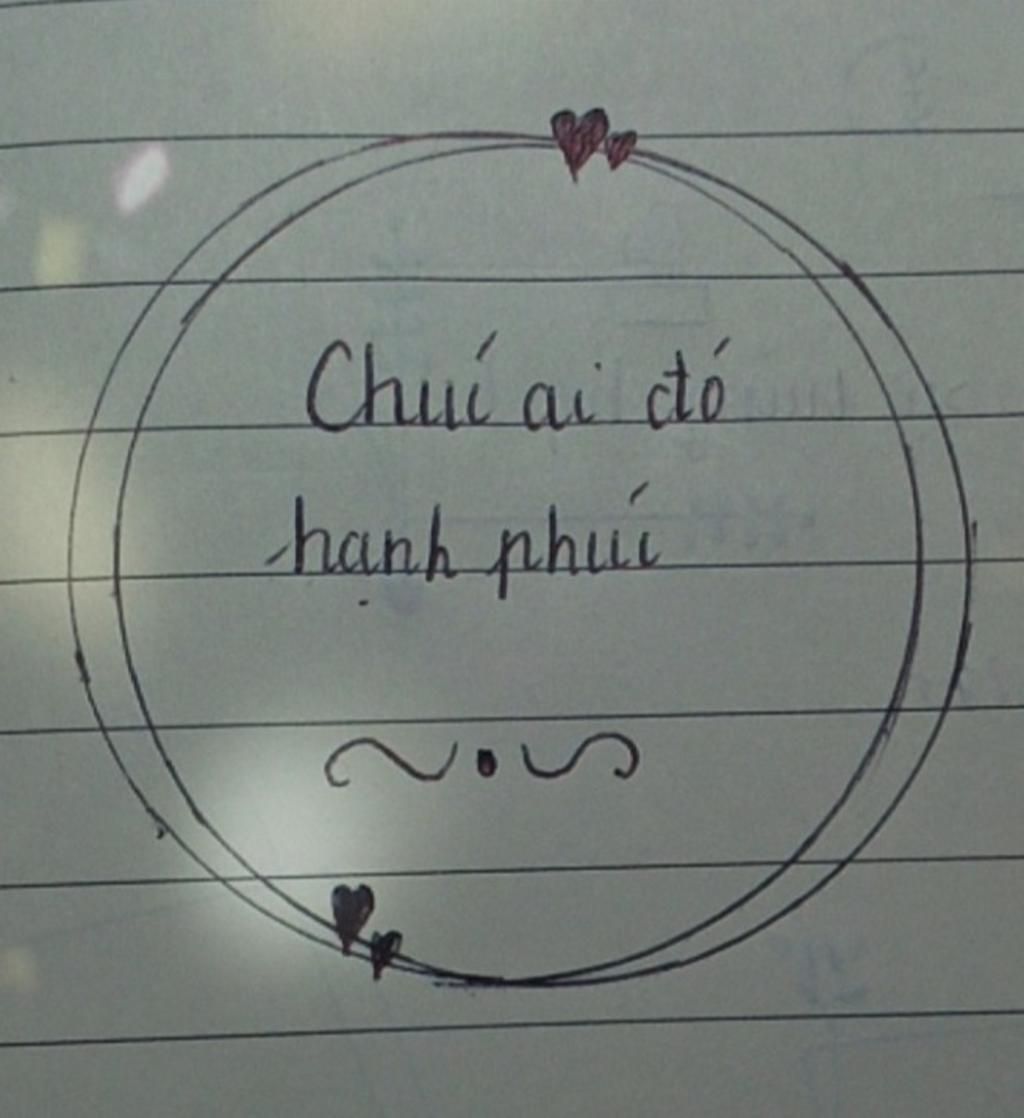 Chúc ai đó
hạnh phúc